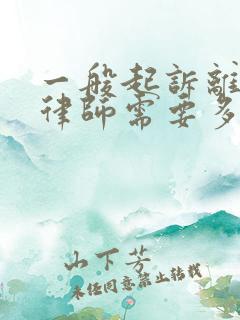 一般起訴離
律師需要多
山下芳
未经同意禁止转载